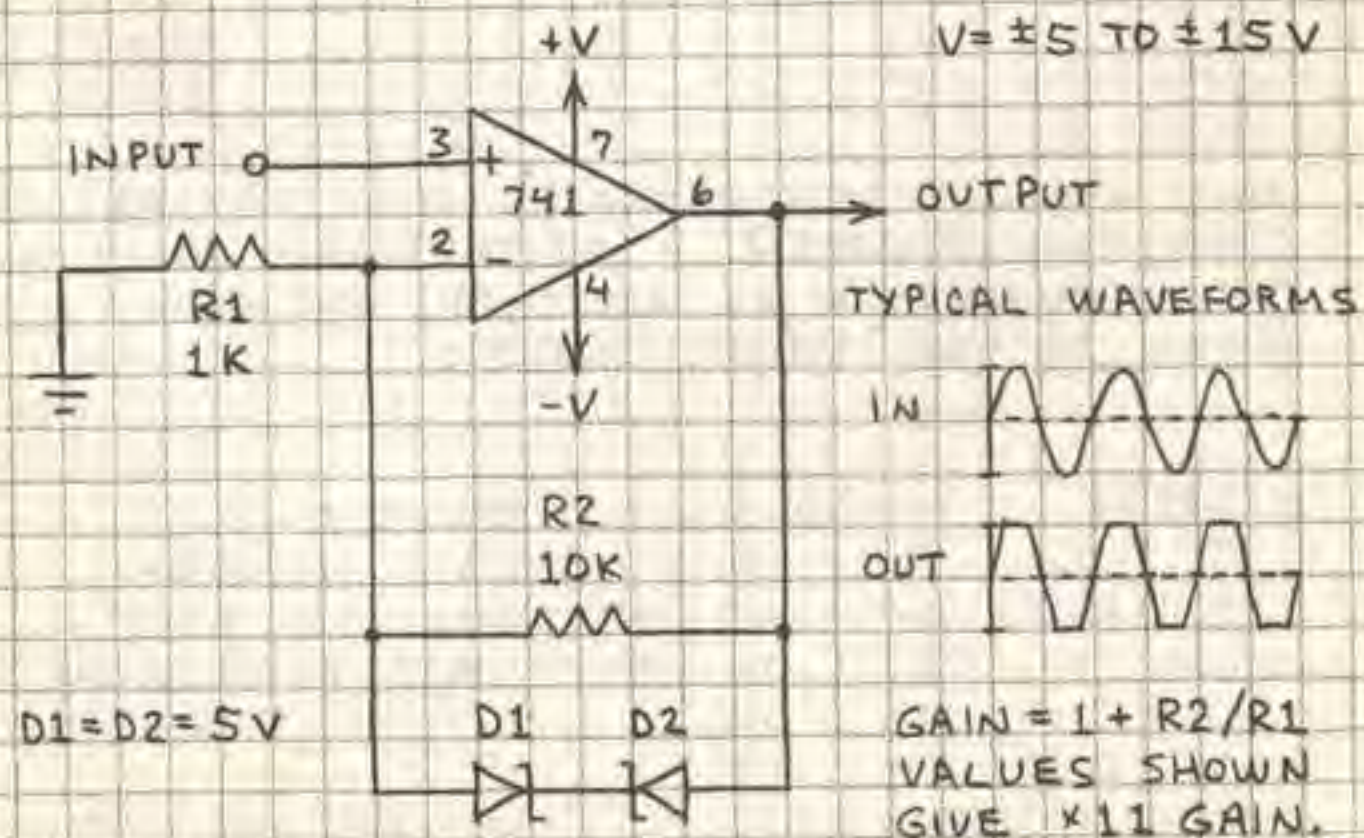 V= ±5 TO ±15 V
+V
INPUT
3
+
7
741
6
OUTPUT
2
-
4
R1
1K
-V
TYPICAL WAVEFORMS
IN
R2
10K
OUT
D1=D2=5V
D1
D2
GAIN = 1 + R2/R1
VALUES SHOWN
GIVE ×11 GAIN.